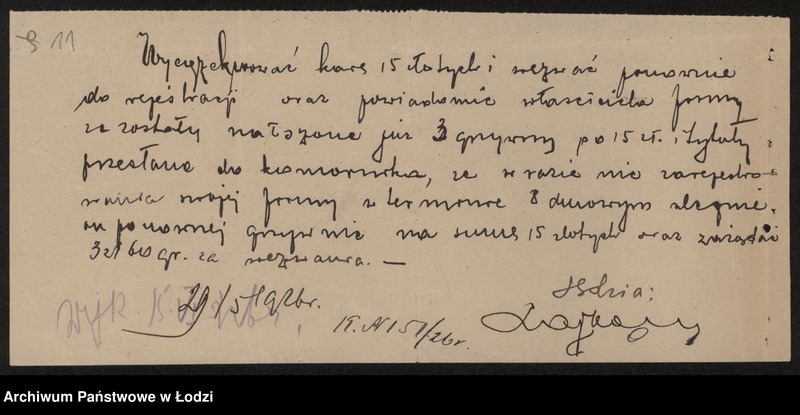 11
Wyegzekwować karę 15 złotych i wezwać ponownie
do rejestracji oraz powiadomić właściciela firmy
że zostały nałożone już 3 grzywny po 15 zł. i tytuły
przesłane do komornika, że w razie nie zarejestro-
wania swojej firmy w terminie 8 dniowym ulegnie
on ponownej grzywnie na sumę 15 złotych oraz zażądać
3 zł 60 gr. za wezwania. —
Sędzia:
29/5 1926r.
Wyk. 15
N 151/26r.
Archiwum Państwowe w Łodzi